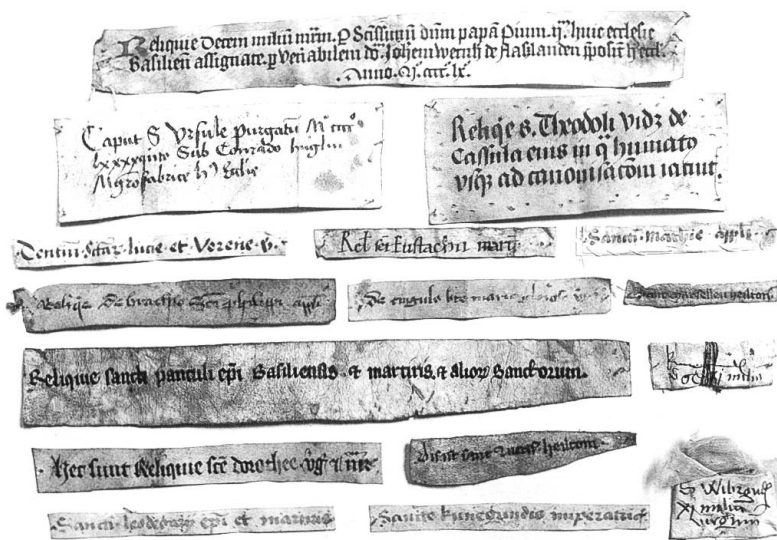 Reliquie Decem miliū mr̄m. ꝑ Sc̄issimū dn̄m papā Pium .ij. huic ecclesie
Basilien̄ assignate. ꝑ ven̄abilem dō. Joh̄em wernh̄ de flaslanden p̄posit̄ h̄ eccl̄.
Anno. M. cccc. lx.
Caput S Vrsule purgatū Mº ccccº
lxxxxquito Sub Conrado hüglin
Mgr̄o fabrice hꝰ Ecl̄ie
Reliq̄e s. Theodoli vidꝫ de
Cassula eius in q̄ humatꝰ
vsqꝫ ad canonisac̄om iacuit.
Dentiū sctaꝝ lucie et Verene v̄.
Rel̄ sci Eustachii mar̄
Sancti Mathie appl̄i
Reliq̄e De brachio Sc̄i philippi appl̄i
De cingulo bt̄e marie v̄gīs
Reliquie sancti pantuli ep̄i Basiliensis & martiris, & alioꝝ Sanctorum.
milia
Hec sunt Reliquie sc̄e dorothee v̄ḡ & mr̄is
Dis ist sant heiltom
S Wibrandis
XI milia
virginū
Sancti leodegarij ep̄i et martiris
Sancte kunegundis imperatric̄